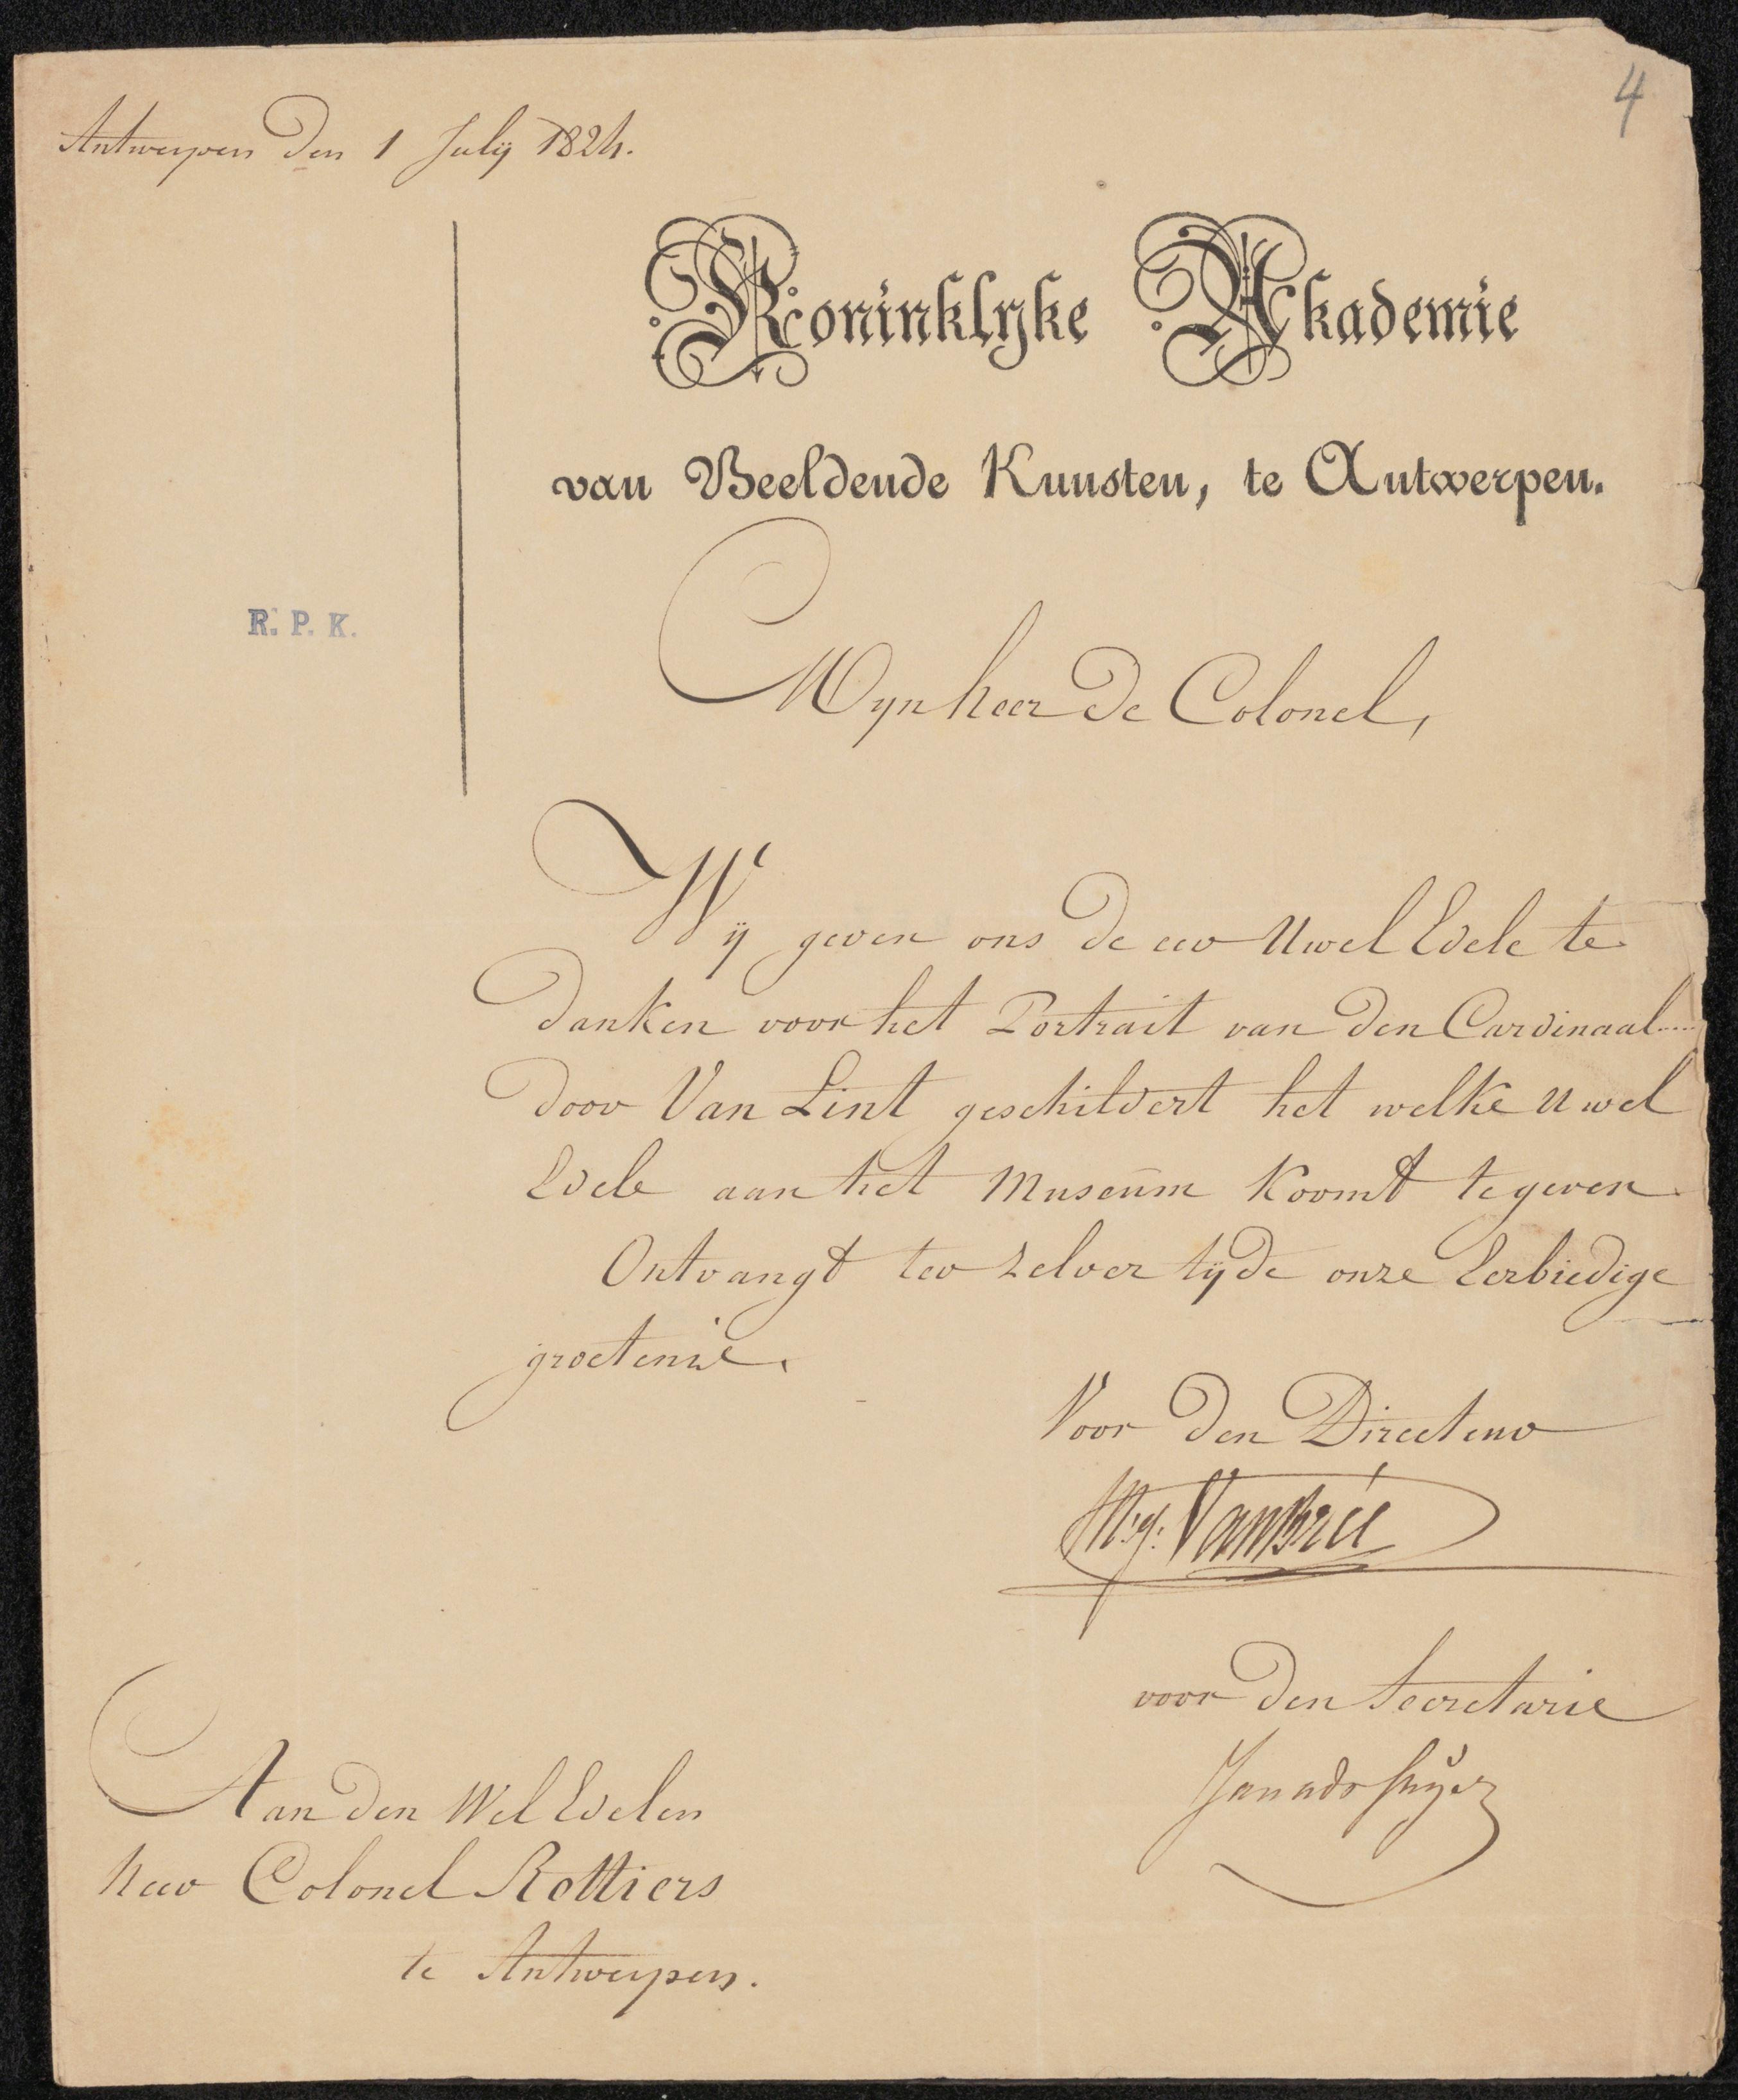 4
Antwerpen den 1 July 1824.
Koninklyke Akademie
van Beeldende Kunsten, te Antwerpen.
R. P. K.
Mynheer de Colonel,
Wij geven ons de eer Uwel Edele te
danken voor het Portrait van den Cardinaal.....
door Van Lint geschildert het welke Uwel
Edele aan het Museum koomt te geven
Ontvangt ter zelver tijde onze Eerbiedige
groetenis.
Voor den Directeur
M.J. VanBrée
voor den Secretaris
Jan adr Snyers
Aan den Wel Edelen
heer Colonel Rottiers
te Antwerpen.